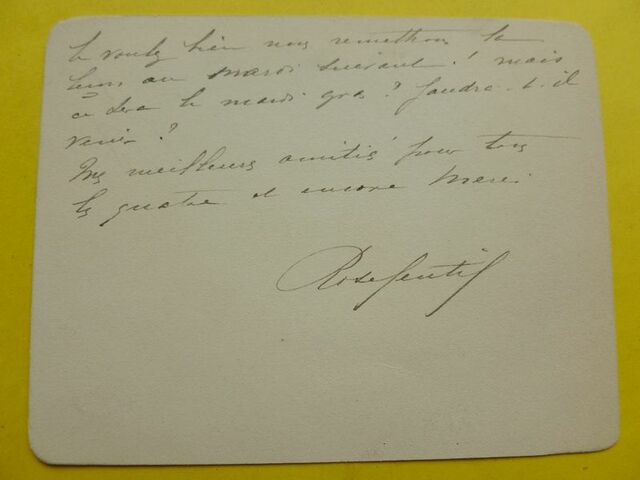 le voulez bien nous remettrons la
leçon au mardi suivant ! mais
ce sera le mardi gras ? faudra-t-il
venir ?
Mes meilleures amitiés pour tous
les quatre et encore merci.
Rose Gentil